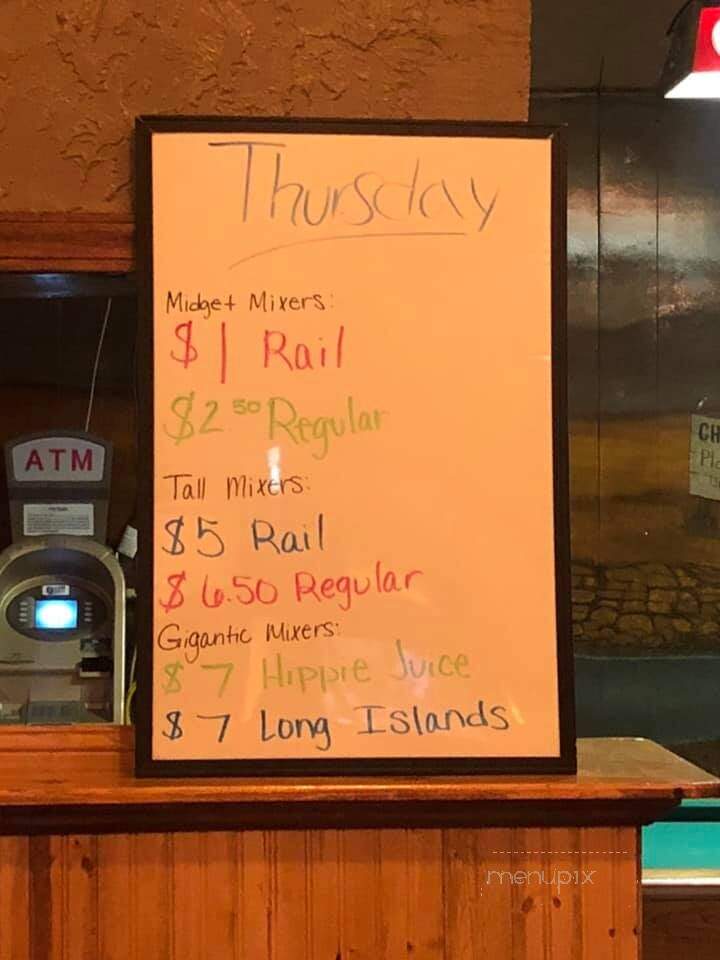 Thursday
Midget Mixers:
$1 Rail
$2 50 Regular
Tall Mixers:
$5 Rail
$6.50 Regular
Gigantic Mixers:
$7 Hippie Juice
$7 Long Islands
ATM
CH
menupix